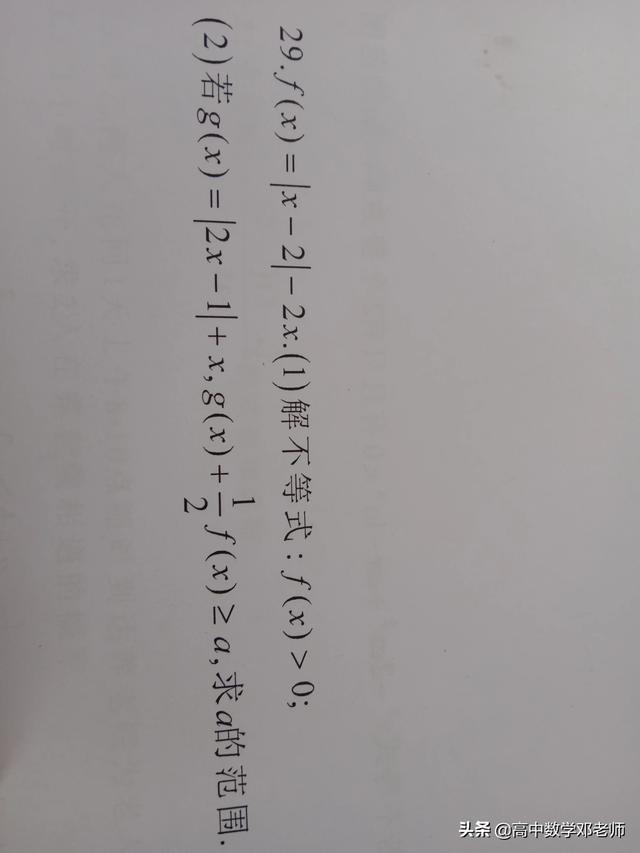 29.f(x)=|x-2|-2x.(1)解不等式:f(x)>0;
(2)若g(x)=|2x-1|+x,g(x)+\frac{1}{2}f(x)≥a,求a的范围.
头条 @高中数学邓老师